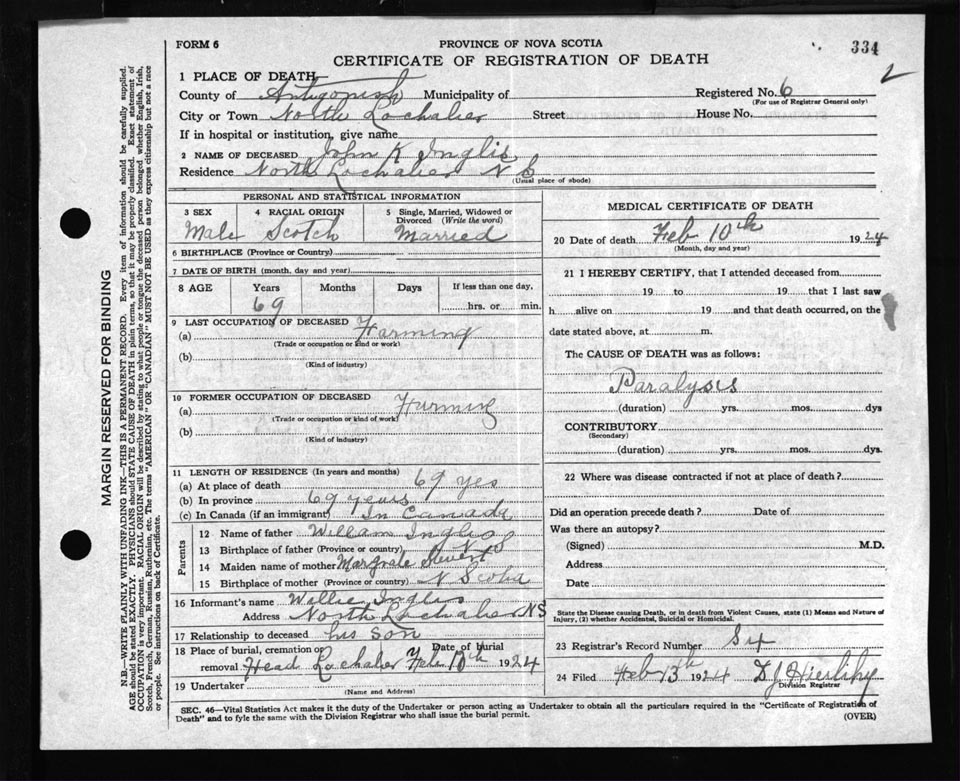 FORM 6
PROVINCE OF NOVA SCOTIA
334
CERTIFICATE OF REGISTRATION OF DEATH
2
1 PLACE OF DEATH—
County of Antigonish Municipality of Registered No. 6
(For use of Registrar General only)
City or Town North Lochaber Street House No.
If in hospital or institution, give name
2 NAME OF DECEASED John K Inglis
Residence North Lochaber N S
(Usual place of abode)
PERSONAL AND STATISTICAL INFORMATION
3 SEX 4 RACIAL ORIGIN 5 Single, Married, Widowed or Divorced (Write the word)
Male Scotch Married
6 BIRTHPLACE (Province or Country)
7 DATE OF BIRTH (month, day and year)
8 AGE Years Months Days If less than one day,
69 hrs. or min.
9 LAST OCCUPATION OF DECEASED
(a) Farming
(Trade or occupation or kind or work)
(b)
(Kind of industry)
10 FORMER OCCUPATION OF DECEASED
(a) Farming
(Trade or occupation or kind of work)
(b)
(Kind of industry)
11 LENGTH OF RESIDENCE (In years and months)
(a) At place of death 69 yes
(b) In province 69 years
(c) In Canada (if an immigrant) In Canada
Parents
12 Name of father William Inglis
13 Birthplace of father (Province or country) N S
14 Maiden name of mother
15 Birthplace of mother (Province or country) N Scotia
16 Informant's name Willie Inglis
Address North Lochaber NS
17 Relationship to deceased his son
18 Place of burial, cremation or removal Head Lochaber Date of burial Feb 1924
19 Undertaker
(Name and Address)
MEDICAL CERTIFICATE OF DEATH
20 Date of death Feb 10th 1924
(Month, day and year)
21 I HEREBY CERTIFY, that I attended deceased from
19 to 19 that I last saw
h alive on 19 and that death occurred, on the
date stated above, at m.
The CAUSE OF DEATH was as follows:
Paralysis
(duration) yrs. mos. dys
CONTRIBUTORY
(Secondary)
(duration) yrs. mos. dys.
22 Where was disease contracted if not at place of death?
Did an operation precede death? Date of
Was there an autopsy?
(Signed) M.D.
Address
Date
State the Disease causing Death, or in death from Violent Causes, state (1) Means and Nature of
Injury, (2) whether Accidental, Suicidal or Homicidal.
23 Registrar's Record Number 84
24 Filed Feb 13th 1924 D J
Division Registrar
SEC. 46—Vital Statistics Act makes it the duty of the Undertaker or person acting as Undertaker to obtain all the particulars required in the "Certificate of Registration of
Death" and to fyle the same with the Division Registrar who shall issue the burial permit.
(OVER)
MARGIN RESERVED FOR BINDING
N.B.—WRITE PLAINLY WITH UNFADING INK—THIS IS A PERMANENT RECORD. Every item of information should be carefully supplied.
AGE should be stated EXACTLY. PHYSICIANS should STATE CAUSE OF DEATH in plain terms, so that it may be properly classified. Exact statement of
OCCUPATION is very important. RACIAL ORIGIN will be described by stating to what people or tongue the deceased person belonged whether English, Irish,
Scotch, French, German, Russian, Ruthenian, etc. The terms "AMERICAN" OR "CANADIAN" MUST NOT BE USED as they express citizenship but not a race
or people. See instructions on back of Certificate.